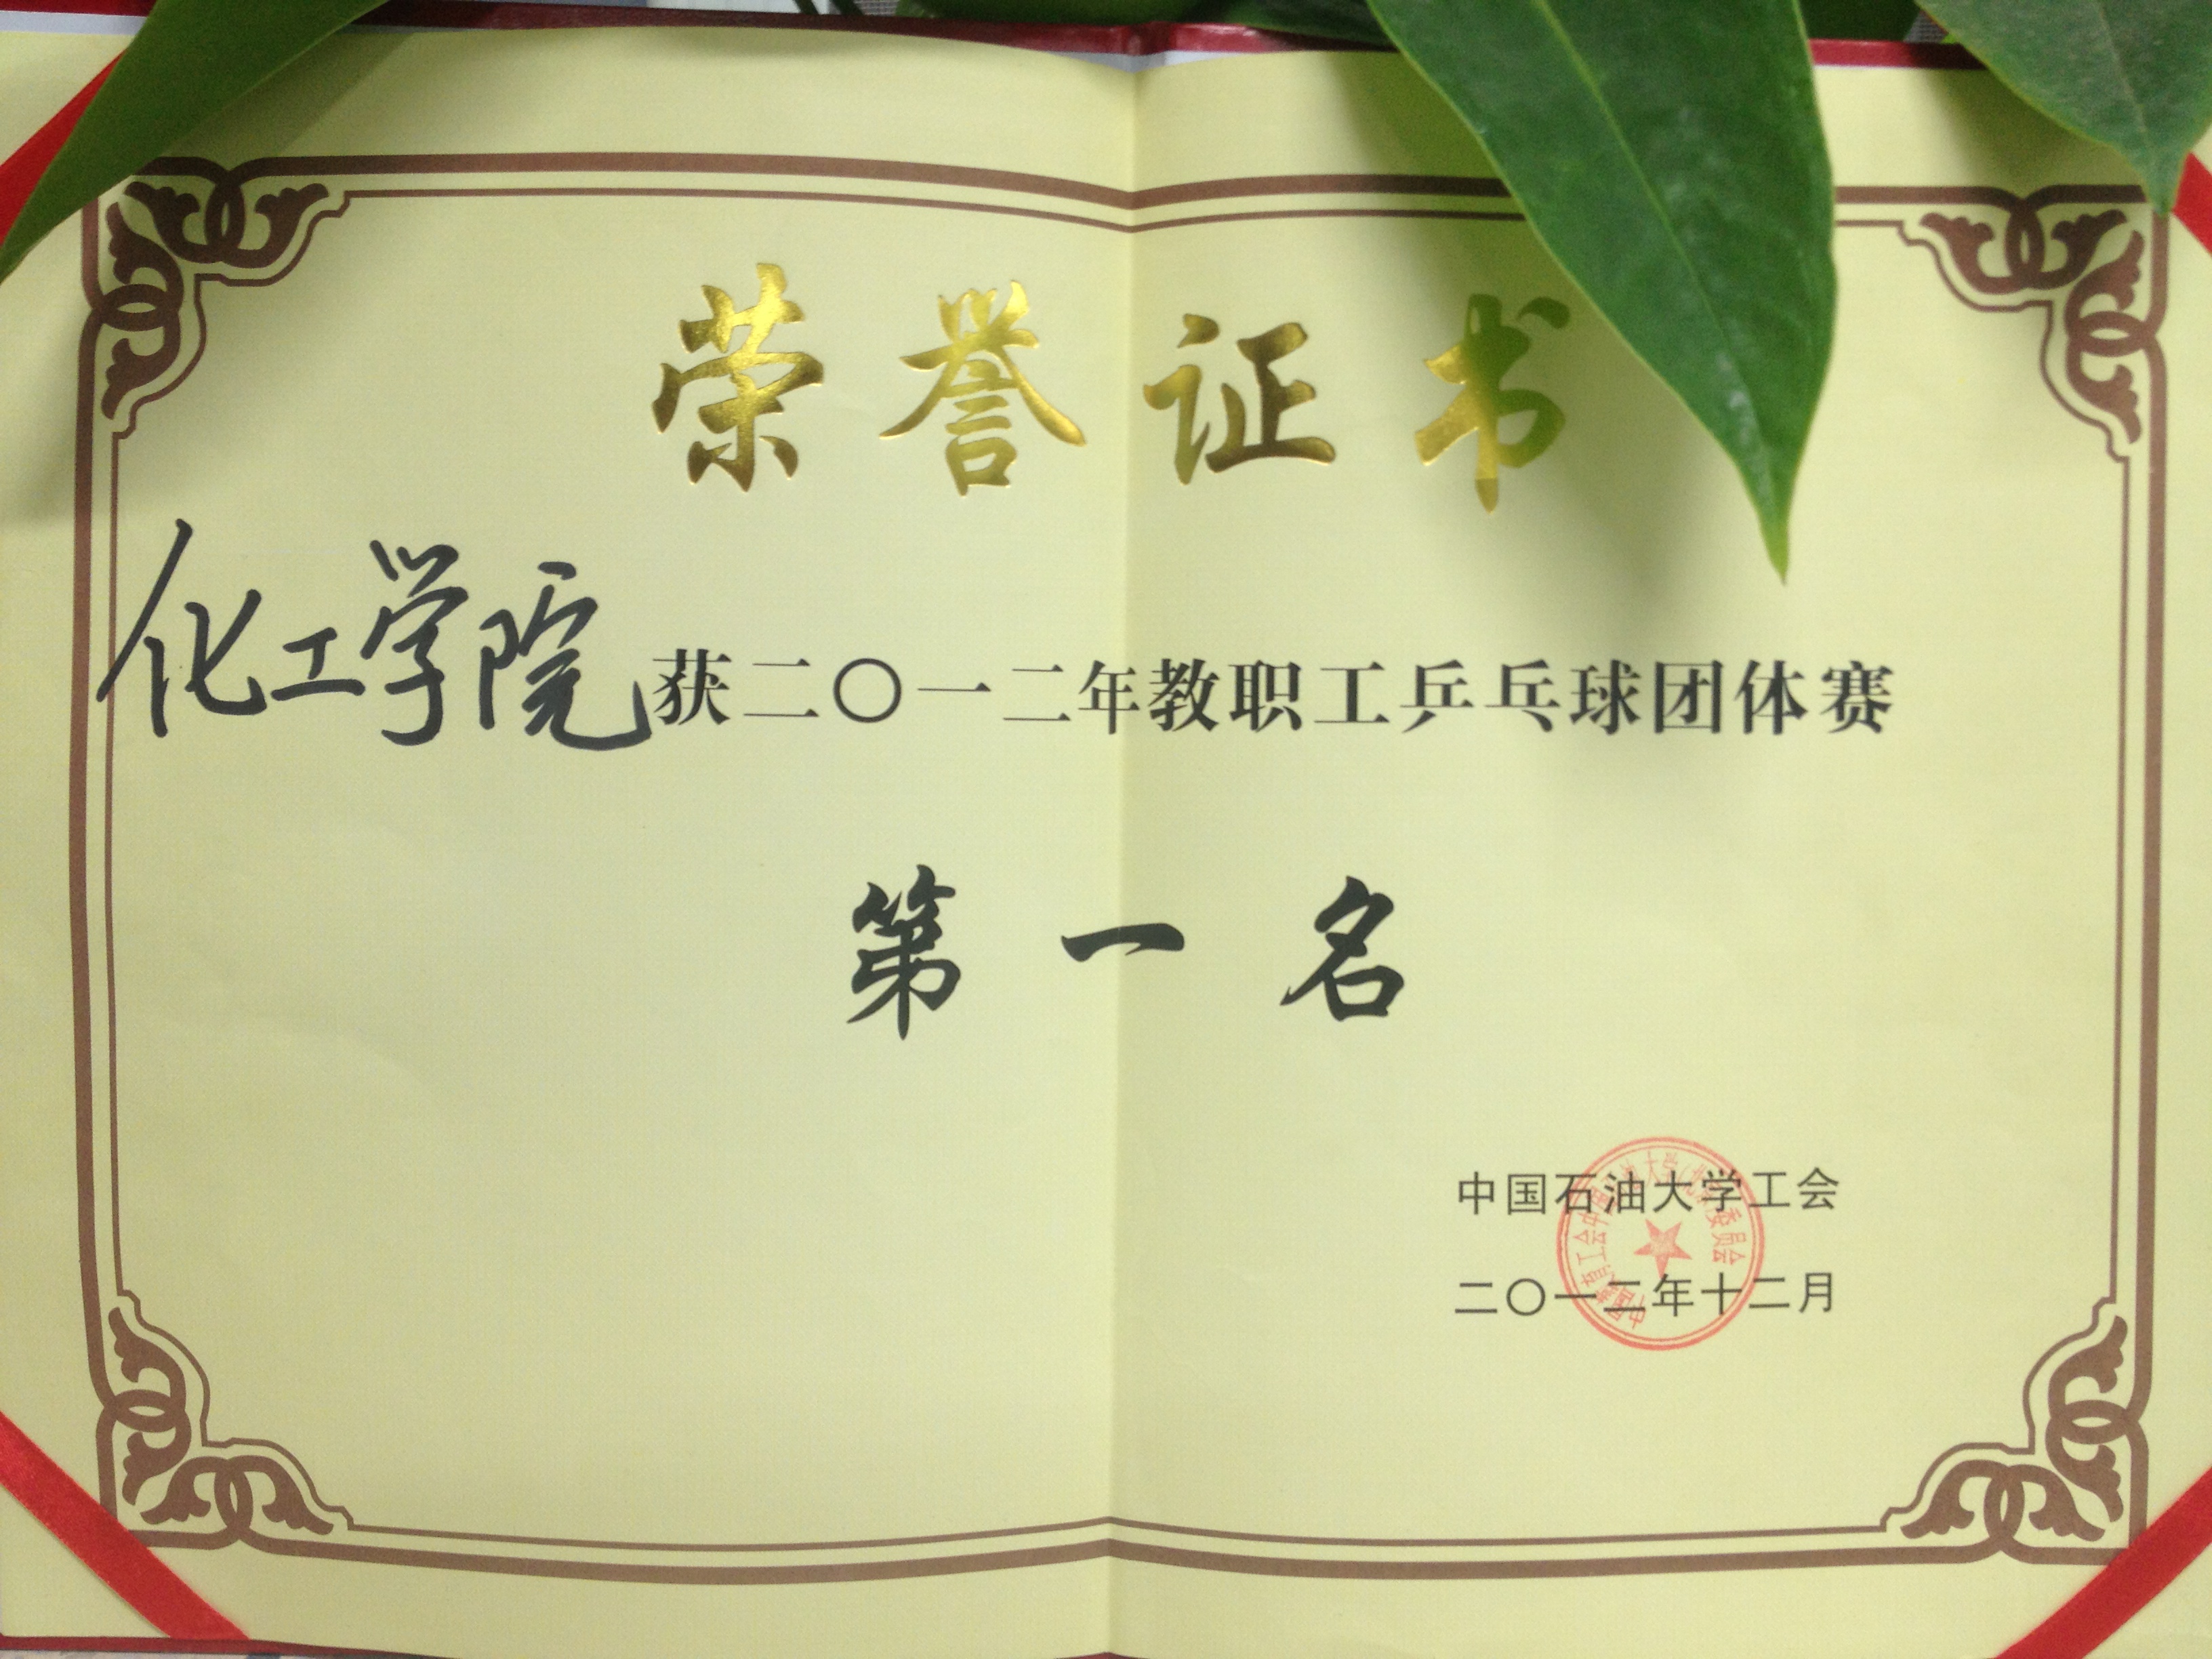 荣誉证书
化工学院获二〇一二年教职工乒乓球团体赛
第一名
中国石油大学工会
二〇一二年十二月